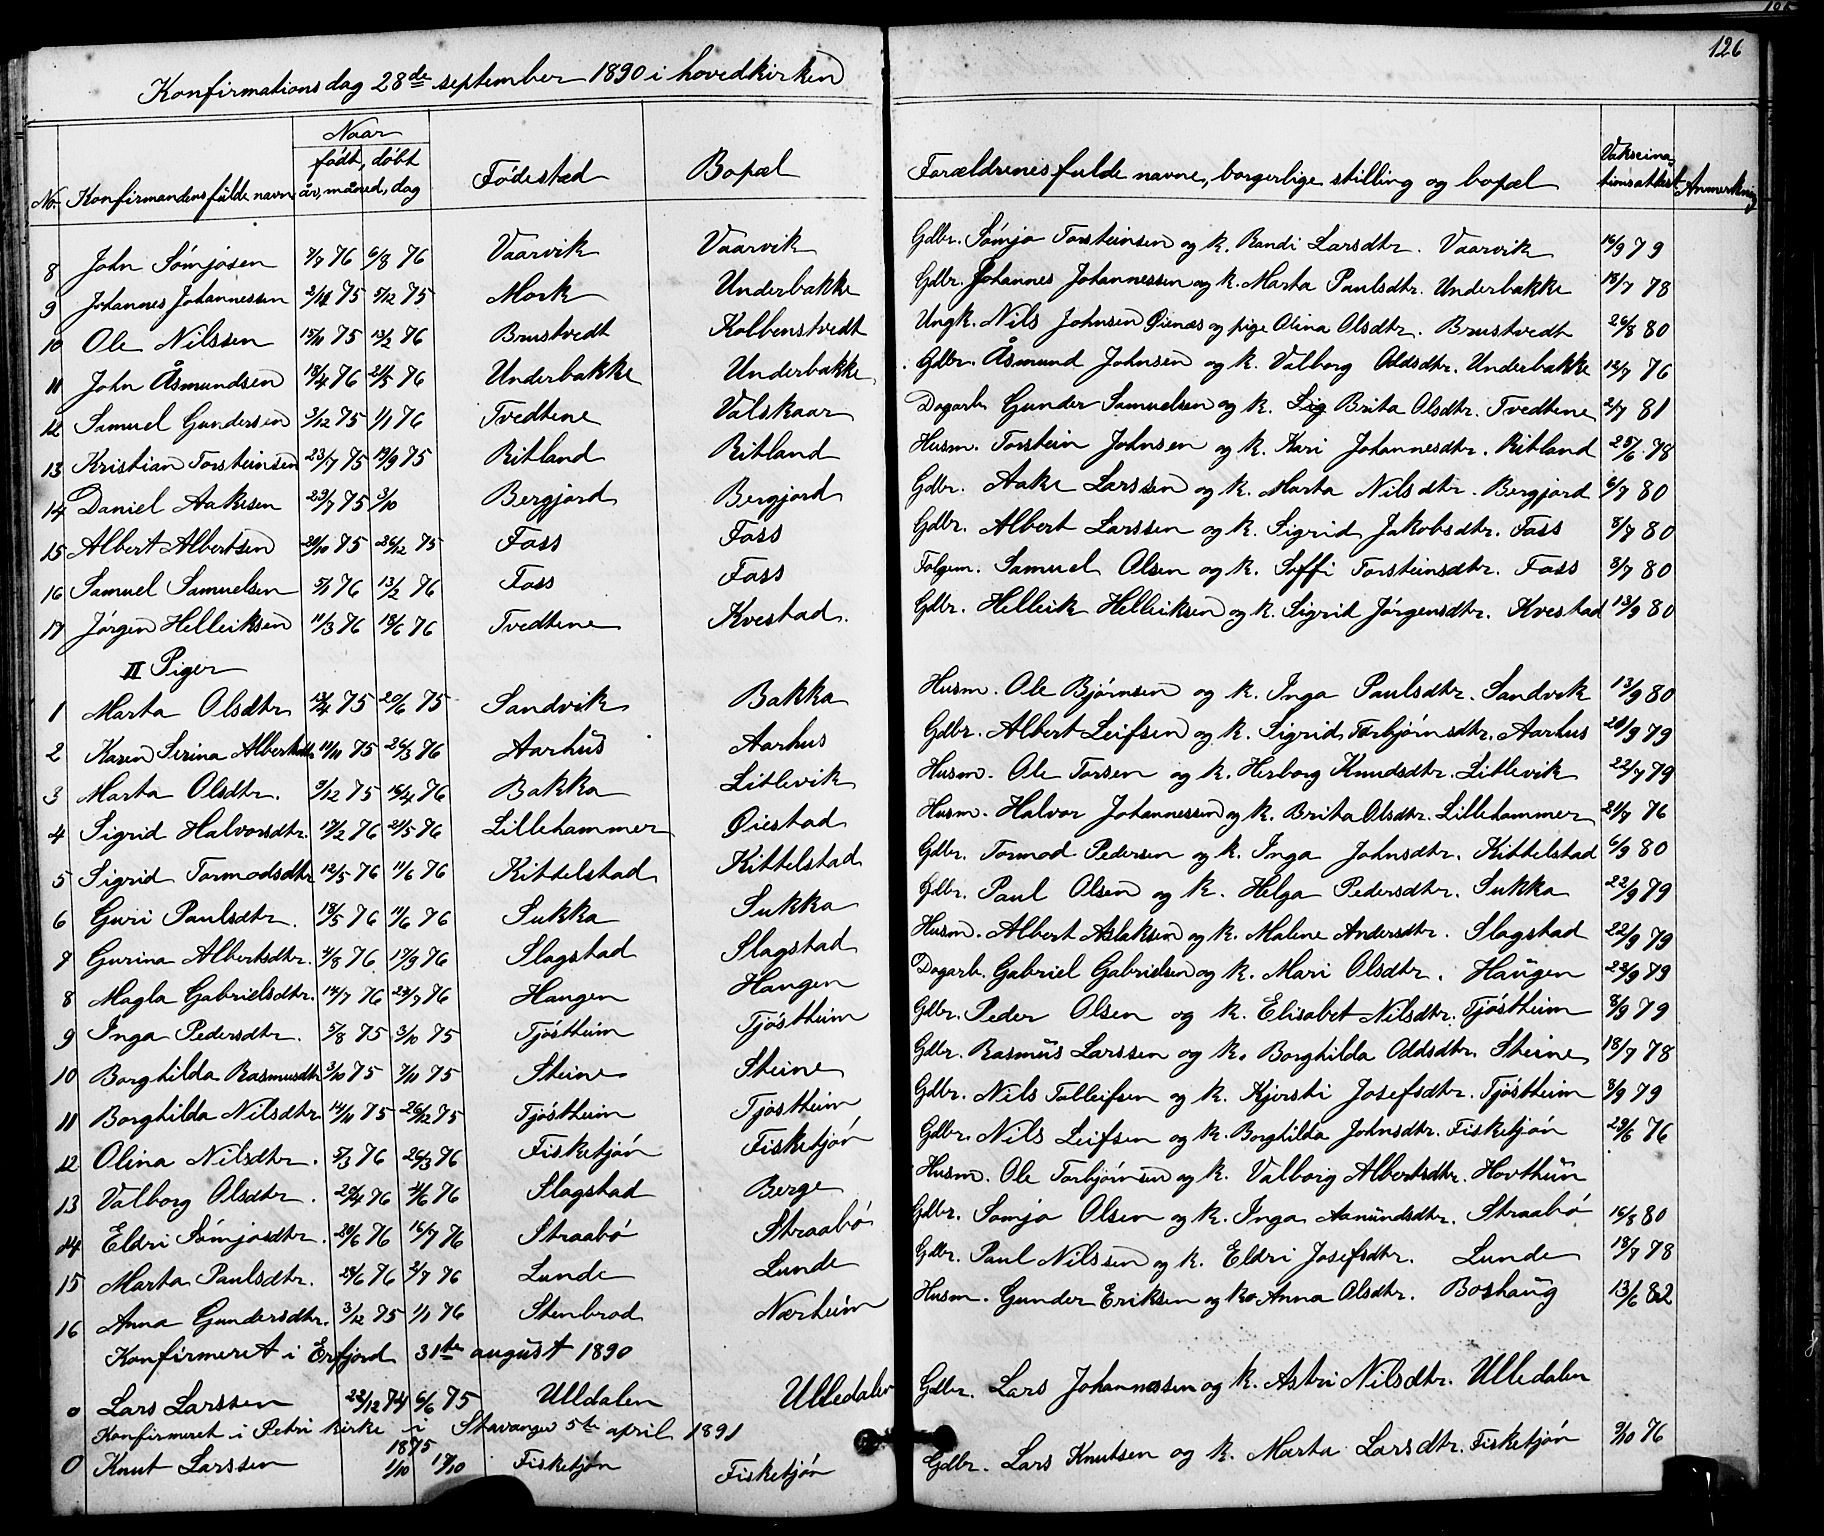 126
Konfirmationsdag 28de september 1890 i hovedkirken
No. Konfirmandens fulde navn Naar født, døbt år, måned, dag Fødested Bopæl Forældrenes fulde navne, borgerlige stilling og bopæl Vakcinationsattest Anmerkning
8 John Sømjøsen 7/7 76 6/8 76 Vaarvik Vaarvik Gdbr. Sømjo Torsteinsen og k. Randi Larsdtr. Vaarvik 16/9 79
9 Johannes Johannessen 75 5/12 75 Mork Underbakke Gdbr. Johannes Johannessen og k. Marta Paulsdtr. Underbakke 18/7 78
10 Ole Nilssen 15/10 75 13/2 76 Brustvedt Kolbenstvedt Ungk. Nils Johnsen Øienæs og pige Olina Olsdtr. Brustvedt 26/8 80
11 John Åsmundsen 18/4 76 21/5 76 Underbakke Underbakke Gdbr. Åsmund Johnsen og k. Valborg Oddsdtr. Underbakke 12/7 76
12 Samuel Gundersen 3/12 75 1/1 76 Tvedtene Valskaar Dagarb. Gunder Samuelsen og k. Brita Olsdtr. Tvedtene 2/7 81
13 Kristian Torsteinsen 23/7 75 19/9 75 Ritland Ritland Husm. Torstein Johnsen og k. Kari Johannesdtr. Ritland 25/6 78
14 Daniel Aakesen 29/7 75 3/10 Bergjord Bergjord Gdbr. Aake Larssen og k. Marta Nilsdtr. Bergjord 6/7 80
15 Albert Albertsen 20/10 75 26/12 75 Foss Foss Gdbr. Albert Larssen og k. Sigrid Jakobsdtr. Foss 8/7 80
16 Samuel Samuelsen 5/1 76 13/2 76 Foss Foss Folgem. Samuel Olsen og k. Soffi Torsteinsdtr. Foss 8/7 80
17 Jørgen Helleiksen 11/3 76 18/6 76 Tvedtene Kvestad. Gdbr. Helleik Helleiksen og k. Sigrid Jørgensdtr. Kvestad 13/9 80
II Piger
1 Marta Olsdtr 75 20/6 75 Sandvik Bakka Husm. Ole Bjørnsen og k. Inga Paulsdtr. Sandvik 13/9 80
2 Karen Serina Albertsdtr 11/11 75 26/3 76 Aarhus Aarhus Gdbr. Albert Leifsen og k. Sigrid Torbjørnsdtr. Aarhus 20/9 79
3 Marta Olsdtr. 9/12 75 16/4 76 Bakka Litlevik Husm. Ole Torsen og k. Herborg Knudsdtr. Litlevik 22/7 79
4 Sigrid Halvorsdtr 17/2 76 21/5 76 Lillehammer Øiestad Husm. Halvor Johannessen og k. Brita Olsdtr. Lillehammer 21/7 76
5 Sigrid Tormodsdtr 12/5 76 11/6 76 Kittelstad Kittelstad Gdbr. Tormod Pedersen og k. Inga Johnsdtr. Kittelstad 6/9 80
6 Guri Paulsdtr. 18/5 76 11/6 76 Sukka Sukka Gdbr. Paul Olsen og k. Helga Pedersdtr. Sukka 22/9 79
7 Gurina Albertsdtr. 4/8 76 17/9 76 Slagstad Slagstad Husm. Albert Aslaksen og k. Malene Andersdtr. Slagstad 22/9 79
8 Magla Gabrielsdtr. 14/7 76 23/7 76 Haugen Haugen Dagarb. Gabriel Gabrielsen og k. Mari Olsdtr. Haugen 23/9 79
9 Inga Pedersdtr. 5/8 75 3/10 75 Tjøstheim Tjøstheim Gdbr. Peder Olsen og k. Elisabet Nilsdtr. Tjøstheim 8/9 79
10 Borghilda Rasmusdtr 3/10 75 7/11 75 Steine Steine Gdbr. Rasmus Larssen og k. Borghilda Oddsdtr. Steine 18/7 78
11 Borghilda Nilsdtr 14/11 75 26/12 75 Tjøstheim Tjøstheim Gdbr. Nils Tolleifsen og k. Kjersti Josefsdtr. Tjøstheim 8/9 79
12 Olina Nilsdtr. 5/3 76 26/3 76 Fisketjøn Fisketjøn Gdbr. Nils Leifsen og k. Borghilda Johnsdtr. Fisketjøn 29/6 76
13 Valborg Olsdtr. 76 76 Slagstad Berge Husm. Ole Torbjørnsen og k. Valborg Albertsdtr. Hovthun
14 Eldri Sømjosdtr. 20/6 76 16/7 76 Straabø Straabø Gdbr. Somjo Olsen og k. Inga Aamundsdtr. Straabø 16/8 80
15 Marta Paulsdtr. 76 2/7 76 Lunde Lunde Gdbr. Paul Nilssen og k. Eldri Josefsdtr. Lunde 18/7 78
16 Anna Gundersdtr. 3/12 75 1/1 76 Stenbrod Nærheim Husm. Gunder Eriksen og k. Anna Olsdtr. Boshaug 13/6 82
Konfirmeret i Erfjord 31te august 1890
0 Lars Larssen 22/12 74 6/6 75 Ulldalen Ulledalen Gdbr. Lars Johannessen og k. Astri Nilsdtr. Ulledalen
Konfirmeret i Petri kirke i Stavanger 5te april 1891
0 Knut Larssen 1875 1/10 17/10 Fisketjøn Fisketjøn Gdbr. Lars Knutsen og k. Marta Larsdtr. Fisketjøn 9/10 76